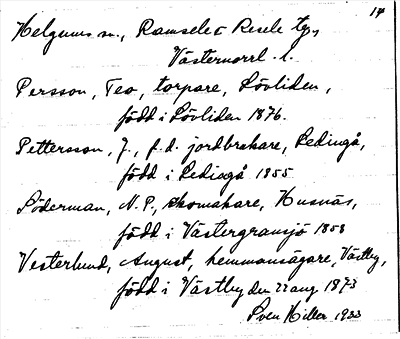 14
Helgums sn., Ramsele o Resele tg,
Västernorrl. l.
Persson, Teo, torpare, Lövliden,
född i Lövliden 1876.
Pettersson, J., f.d. jordbrukare, Ledingå,
född i Ledingå 1855
Söderman, N.P., skomakare, Husnäs,
född i Västergransjö 1858
Vesterlund, August, hemmansägare, Västby,
född i Västby den 22 aug 1873
Sven Hiller 1933